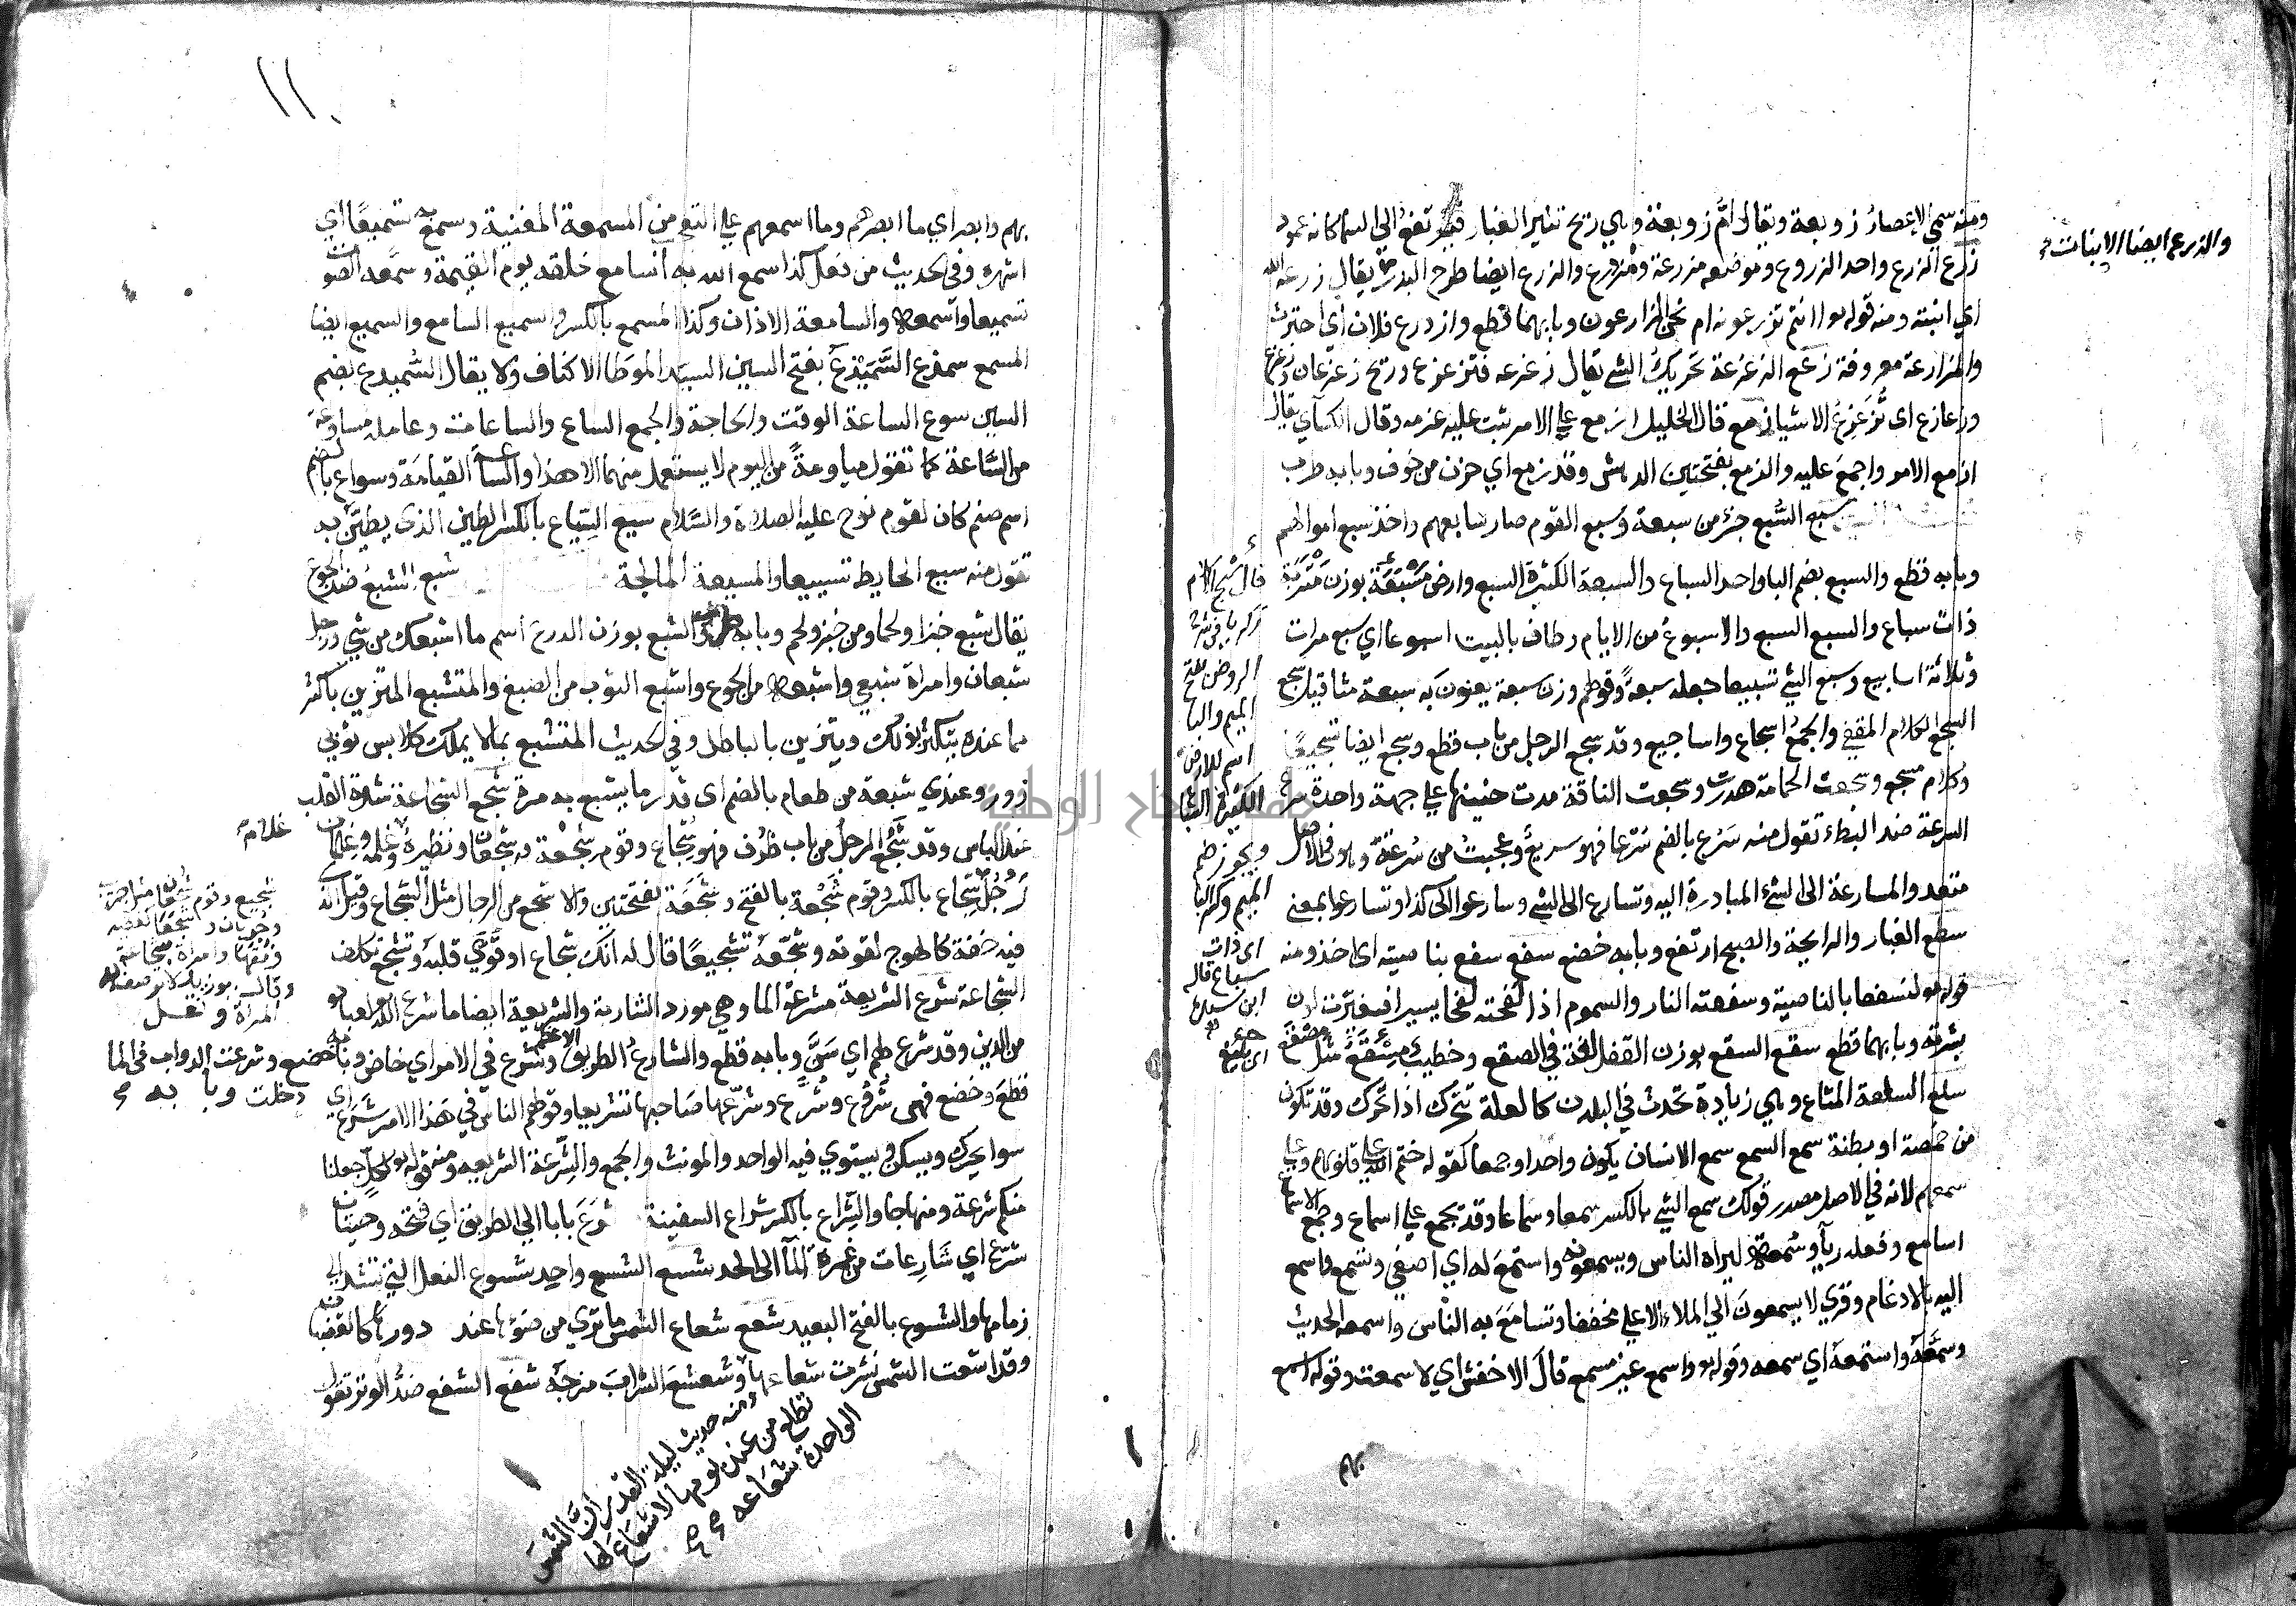 ومنه سمي الاعصار زوبعة ويقال ام زوبعة وهي ريح تثير الغبار فيرتفع الي السما كانه عمود
زرع الزرع واحد الزروع وموضعه مزرعة ومزدرع والزرع ايضا طرح البذر يقال زرعه الله
اي انبته ومنه قوله تع اانتم تزرعونه ام نحن الزارعون وبابهما قطع وازدرع فلان اي احترث
والمزارعة معروفة زعع الزعزعة تحريك الشي يقال زعزعه فتزعزع وريح زعزعان وزعزع
وزعازع اي تزعزع الاشيا زمع قال الخليل ازمع علي الامر ثبت عليه عزمه وقال الكسآي يقال
ازمع الامر واجمع عليه والزمع بفتحتين الدهش وقد زمع اي حزن من خوف وبابه طرب
سبع السبع جزء من سبعة وسبع القوم صار سابعهم واخذ سبع اموالهم
وبابه قطع والسبع بضم البا واحد السباع والسبعة الكثيرة السبع وارض مسبعة بوزن متربة
ذات سباع والسبع السبع والاسبوع من الايام وطاف بالبيت اسبوعا اي سبع مرات
وثلاثة اسابيع وسبع الشي تسبيعا جعله سبعة وقولهم وزن سبعة يعنون به سبعة مثاقيل سجع
السجع الكلام المقفي والجمع اسجاع واساجيع وقد سجع الرجل من باب قطع وسجع ايضا تسجيعا
وكلام مسجع وسجعت الحمامة هدرت وسجعت الناقة مدت حنينها علي جهة واحدة سرع
السرعة ضد البطء تقول منه سرع بالضم سرعا فهو سريع وعجبت من سرعته وهو في الاصل
متعد والمسارعة الي الشيء المبادرة اليه وتسارع الي الشي وسارعوا الي كذا وتسارعوا بمعني
سطع الغبار والرايحة والصبح ارتفع وبابه خضع سفع سفع بناصيته اي اخذ ومنه
قوله تع لنسفعا بالناصية وسفعته النار والسموم اذا لفحته لفحا يسيرا فغيرت لون
بشرته وبابهما قطع سقع السقع بوزن القفل لغة في الصقع وخطيب مسقع مثل مصقع
سلع السلعة المتاع وهي زيادة تحدث في البدن كالغدة تتحرك اذا تحركت وقد تكون
من حمصة او بطنة سمع السمع سمع الانسان يكون واحدا وجمعا كقوله ختم الله علي قلوبهم وعلي
سمعهم لانه في الاصل مصدر قولك سمع الشي بالكسر سمعا وسماعا وقد يجمع علي اسماع وجمع الاسماع
اسامع وفعله ريآ وسمعة ليراه الناس ويسمعوا به واستمع له اي اصغي وتسمع واسمع
اليه بالادغام وقري لا يسمعون الي الملاء الاعلي مخففا وتسامع به الناس واسمعه الحديث
وسمعه واستمعه اي سمعه وقوله تع واسمع غير مسمع قال الاخفش اي لا سمعت وقوله اسمع
بهم
والزرع ايضا الانبات
قال شيخ الاسلام
زكريا في شرح
الروض بفتح
الميم والبا
اسم للارض
الكثيرة السباع
ويجوز ضم
الميم وكسر البا
اي ذات
سباع قاله
ابن سيده
اي بليغ
١١٠
بهم وابصر اي ما ابصرهم وما اسمعهم علي التعجب والمسمعة المغنية وسمع به تسميعا اي
اشهره وفي الحديث من فعل كذا سمع الله به اسامع خلقه يوم القيمة وسمعه الصوت
تسميعا واسمعه والسامعة الاذن وكذا المسمع بالكسر والسميع السامع والسميع ايضا
المسمع سمذع السميذع بفتح السين السيد الموطا الاكناف ولا يقال السميدع بضم
السين سوع الساعة الوقت والحاجة والجمع الساع والساعات وعامله مساوعة
من الساعة كما تقول مياومة من اليوم لا يستعمل منهما الا هذا والساعة القيامة وسواع بالضم
اسم صنم كان لقوم نوح عليه الصلاة والسلام سيع السياع بالكسر الطين الذي يطين به
تقول منه سيع الحايط تسييعا والمسيعة المالجة شبع الشبع ضد الجوع
يقال شبع خبزا ولحما ومن خبز ولحم وبابه طرب والشبع بوزن الدرع اسم ما اشبعك من شي ورجل
شبعان وامراة شبعي واشبعه من الجوع واشبع الثوب من الصبغ والمتشبع المتزين باكثر
مما عنده يتكثر بذلك ويتزين بالباطل وفي الحديث المتشبع بما لا يملك كلابس ثوبي
زور وعندي شبعة من طعام بالضم اي قدر ما يشبع به مرة شجع الشجاعة شدة القلب
عند الباس وقد شجع الرجل من باب ظرف فهو شجاع وقوم شجعة وشجعان ونظيره غلمة وغلمان
رجل شجاع بالكسر وقوم شجعة بالفتح وشجعة بفتحتين والاشجع من الرجال مثل الشجاع وقيل الذي
فيه خفة كالهوج لقوته وشجعه تشجيعا قال له انك شجاع او قوي قلبه وتشجع تكلف
الشجاعة شرع الشريعة مشرعة الما وهي مورد الشاربة والشريعة ايضا ما شرع الله لعباده
من الدين وقد شرع لهم اي سن وبابه قطع والشارع الطريق الاعظم وشرع في الامر اي خاض وبابه خضع وشرعت الدواب في الما
قطع وخضع فهي شروع وشرع وشرعها صاحبها تشريعا وقولهم الناس في هذا الامر شرع اي دخلت وبابه
سوا يحرك ويسكن يستوي فيه الواحد والمونث والجمع والشرعة الشريعة ومنه قوله تع لكل جعلنا
منكم شرعة ومنهاجا والشراع بالكسر شراع السفينة شرع بابا الي الطريق اي فتحه وحيتان
شرع اي شارعات من غمرة المآ الي الحد شسع الشسع واحد شسوع النعل التي تشد الي
زمامها والشسوع بالفتح البعيد شعع شعاع الشمس ما تري من ضوئها عند دورها كالقضبان
وقد اشعت الشمس نشرت شعاعها وشعشع الشراب مزجه شفع الشفع ضد الوتر تقول
غلام
شجيع وقوم شجعان مثل جريب
وجربان وشجعا كفقيه
وفقها وامراة شجاعة
وقال ابو زيد لا توصف به
المراة
ومنه حديث ليلة القدر ان الشمس
تطلع من غد يومها لا شعاع لها
الواحدة شعاعه